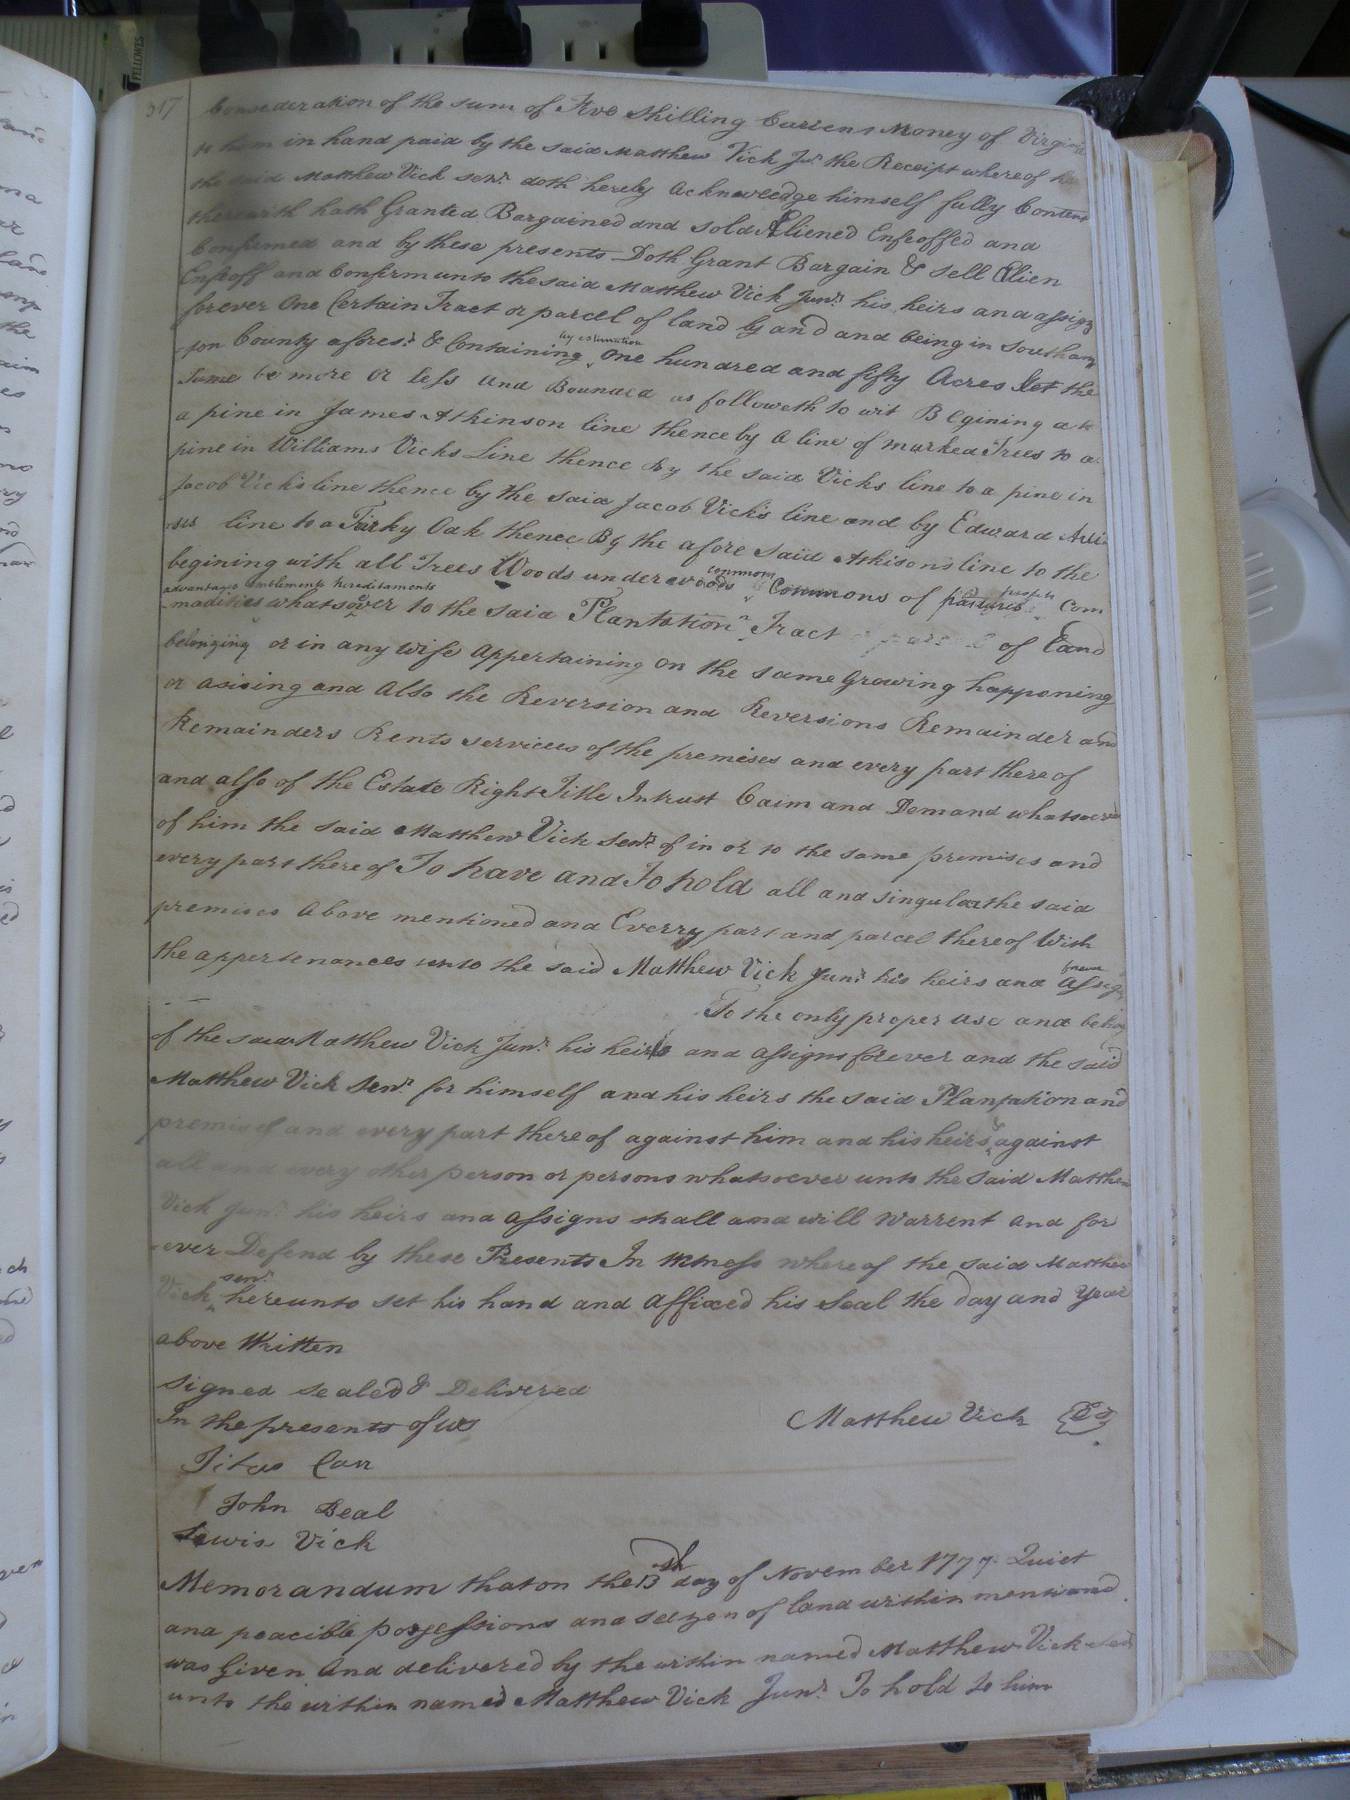 317
Consederation of the sum of Five Shilling Curren Money of Virginia
to him in hand paid by the said Matthew Vick Junr. the Receipt whereof he
the said Matthew Vick senr. doth hereby acknowledge himself fully Content
therewith hath Granted Bargained and sold Aliened Enfeoffed and
Confirmed and by these presents Doth Grant Bargain & sell Alien
Enfeoff and Confirm unto the said Matthew Vick Junr. his heirs and assigns
forever One Certain Tract or parcel of land by and and being in Southam
-ton County afores.d & Containing by estimation One hundred and fifty Acres let the
Same be more or less and Bounded as followeth to wit Begining at
a pine in James Atkinson line thence by a line of marked Trees to a
pine in Williams Vicks Line thence By the said Vicks line to a pine in
Jacob Vick's line thence by the said Jacob Vick's line and by Edward
line to a Turky Oak thence By the afore said Atkisons line to the
begining with all Trees Woods underwoods commons Commons of pastures Com
advantages emblements hereditaments
-modities whatsoever to the said Plantation Tract of Land
belonging or in any wise appertaining on the same growing happoning
or asising and Also the Reversion and Reversions Remainder and
Remainders Rents services of the premises and every part there of
and also of the Estate Right Title Intrust Caim and Demand whatsoever
of him the said Matthew Vick Senr. of in or to the same premises and
every part there of To have and To hold all and singular the said
premises Above mentioned and Everry part and parcel thereof With
the appertenances unto the said Matthew Vick Junr. his heirs and forever Assigns
To the only proper use and behoof
of the said Matthew Vick Junr. his heirs and assigns forever and the said
Matthew Vick Senr. for himself and his heirs the said Plantation and
premises and every part there of against him and his heirs & against
all and every other person or persons whatsoever unto the said Matthew
Vick Junr. his heirs and assigns shall and will Warrent and for
-ever Defend by these Presents In Witness where of the said Matthew
Vick senr. hereunto set his hand and affixed his Seal the day and Year
above Written
signed sealed & Delivered
In the presents of us
Matthew Vick
Titus Carr
John Beal
Lewis Vick
Memorandum that on the 13th day of November 1777 Quiet
and peacible possessions and seizen of land within mentioned
was Given And delivered by the within named Matthew Vick
unto the within named Matthew Vick Junr. To hold to him
FELLOWES